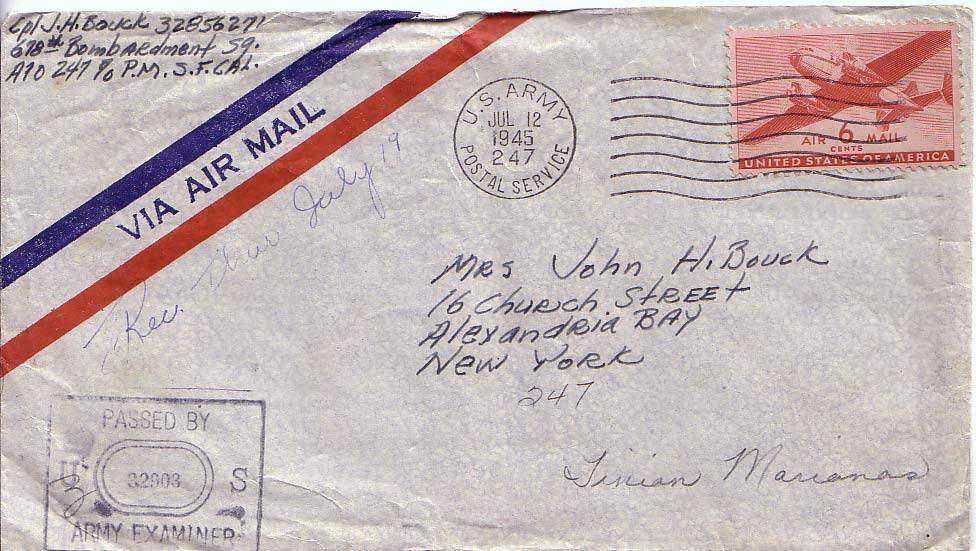 Cpl J.H. Bouck 32856271
678th Bombardment Sq.
APO 247 % P.M. S.F. CAL.
VIA AIR MAIL
U.S. ARMY
JUL 12
1945
247
POSTAL SERVICE
AIR 6 MAIL
CENTS
UNITED STATES OF AMERICA
Rec. Thur July 19
Mrs John H. Bouck
16 Church Street
Alexandria Bay
New York
247
Tinian Marianas
PASSED BY
U 32903 S
ARMY EXAMINER